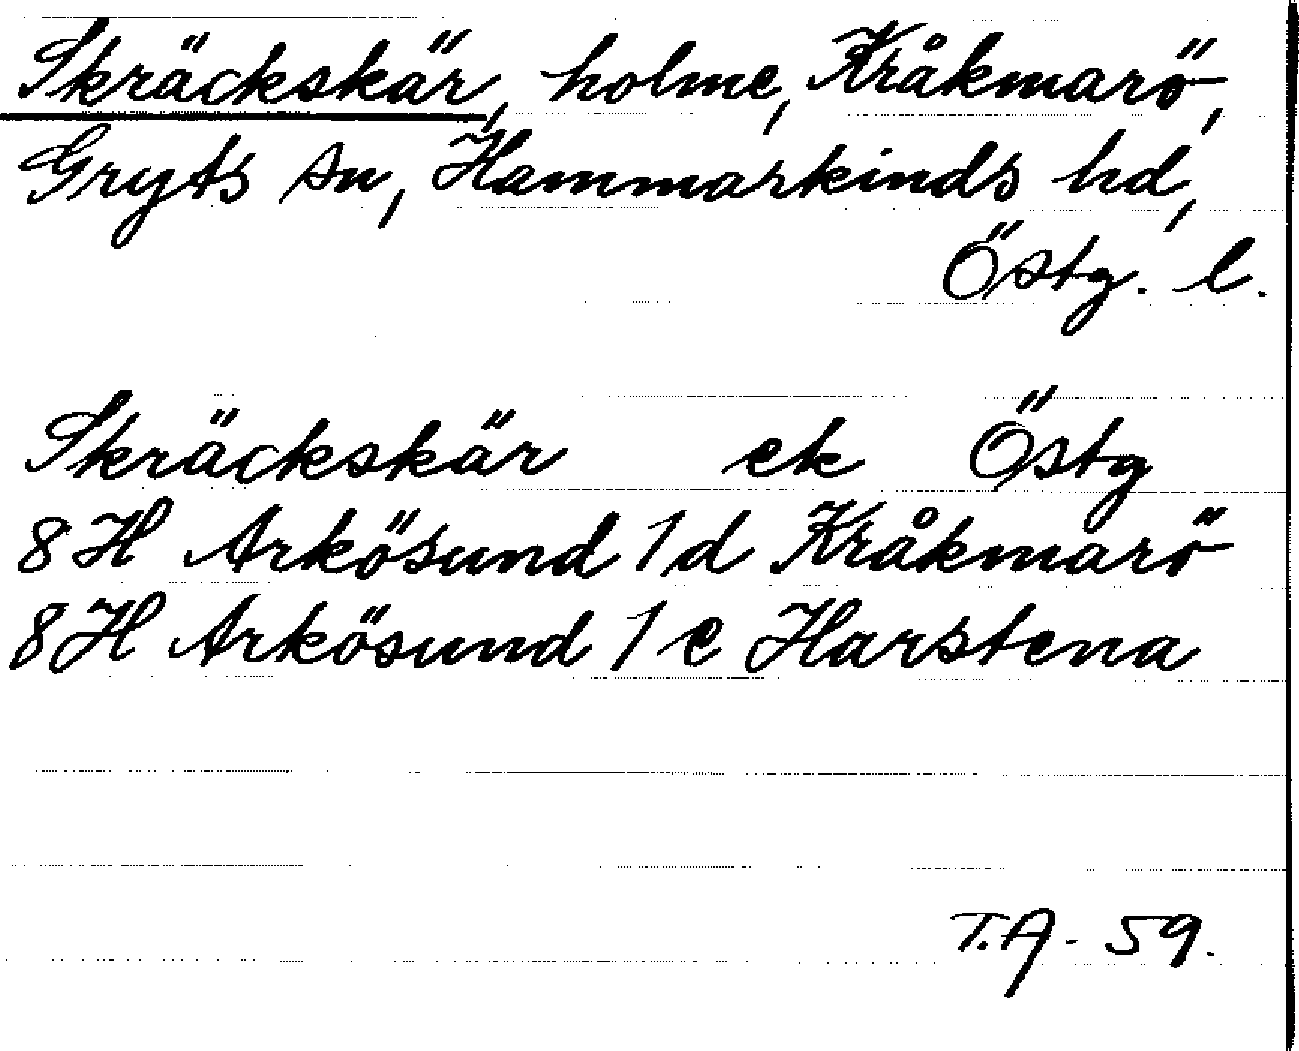 Skräckskär, holme, Kråkmarö,
Gryts sn, Hammarkinds hd,
Östg. l.
Skräckskär ek Östg
8H Arkösund 1d Kråkmarö
8H Arkösund 1e Harstena
T.A - 59.